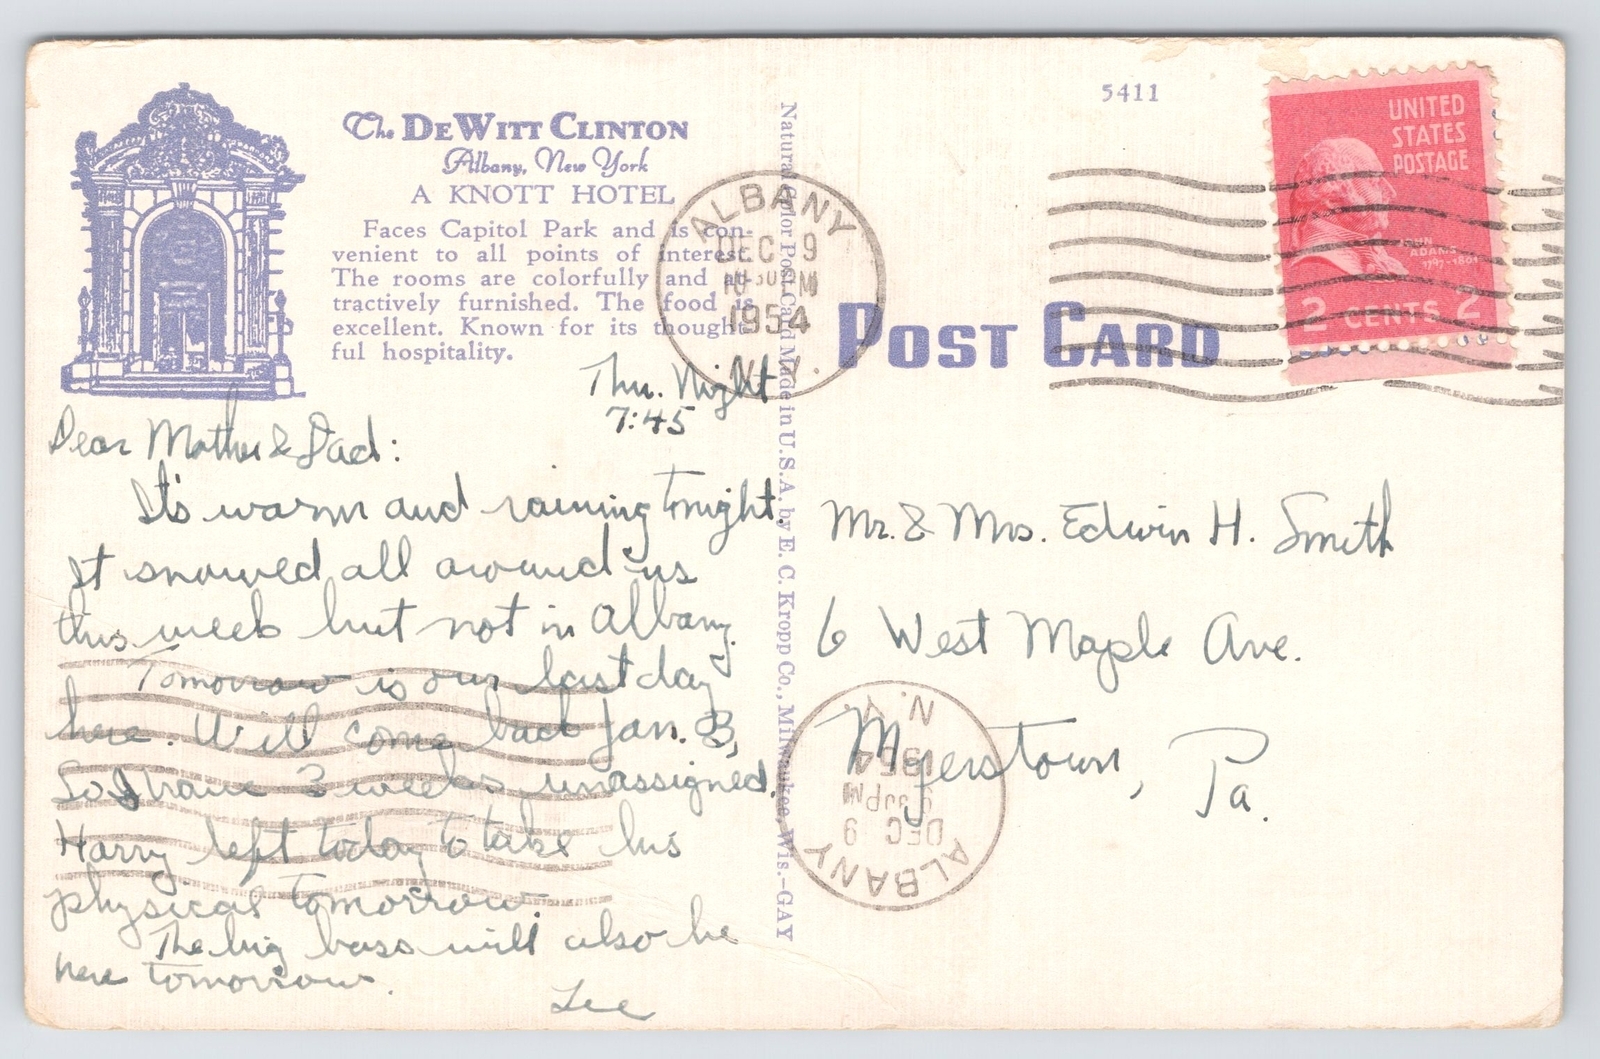 The DEWITT CLINTON
Albany, New York
A KNOTT HOTEL
Faces Capitol Park and is con-
venient to all points of interest.
The rooms are colorfully and at-
tractively furnished. The food is
excellent. Known for its thought-
ful hospitality.
Thu. Night
7:45
Dear Mother & Dad:
It's warm and raining tonight.
It snowed all around us
this week but not in Albany.
Tomorrow is our last day
here. Will come back Jan. 3,
So I have 3 weeks unassigned.
Harry left today to take his
physical tomorrow.
The big boss will also be
here tomorrow.
Lee
Natural Color Post Card Made in U.S.A. by E. C. Kropp Co., Milwaukee, Wis.—GAY
5411
POST CARD
ALBANY
DEC 9
PM
1954
N.Y.
UNITED
STATES
POSTAGE
JOHN
ADAMS
1797-1801
2 CENTS 2
Mr. & Mrs. Edwin H. Smith
6 West Maple Ave.
Myerstown, Pa.
ALBANY
DEC 9
PM
1954
N.Y.